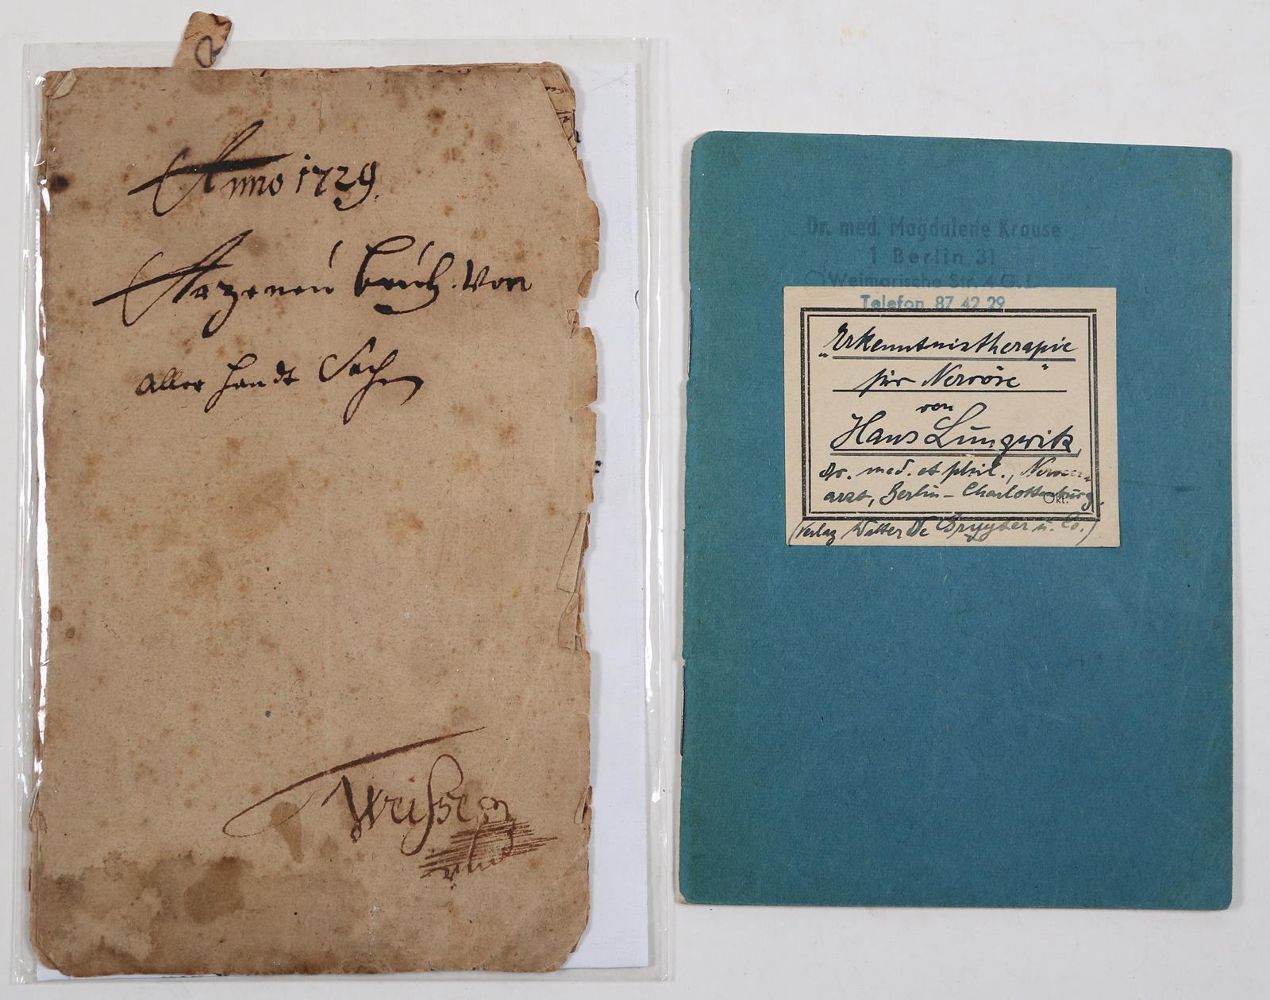 Anno 1729.
Arzeneü büch. Von
aller handt Sachen
Dr. med. Magdalene Krause
1 Berlin 31
Weimarische Str.
Telefon 87 42 29
"Erkenntnistherapie
für Nervöse"
von
Hans Lungwitz,
Dr. med. et phil., Nerven-
arzt, Berlin-Charlottenburg.
Okt.
(Verlag Walter De Gruyter u. Co.)